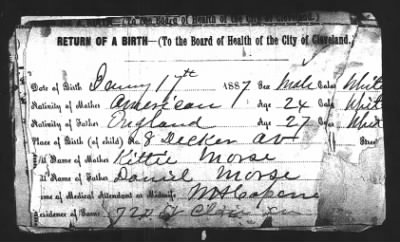 (To the Board of Health of the City of Cleveland.)
RETURN OF A BIRTH—(To the Board of Health of the City of Cleveland.
Date of Birth Jenny 17th 1887 Sex Male Color White
Nativity of Mother American Age 24 Color Whit
Nativity of Father England Age 27 Color Whit
Place of Birth (of child) No. 8 Decker av Street
Full Name of Mother Kittie Morse
Full Name of Father Daniel Morse
Name of Medical Attendant or Midwife
Residence of Same 720 St Clair